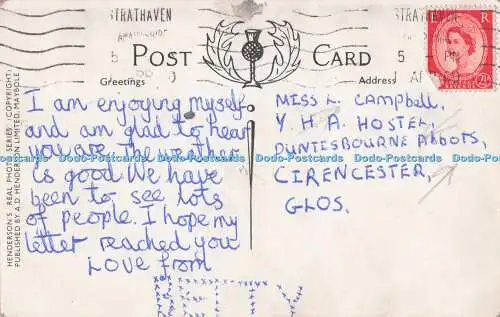 STRATHAVEN
STRATHAVEN
5
5 PM
POST CARD
Greetings
Address
R
2½D
HENDERSON'S REAL PHOTO SERIES (COPYRIGHT)
PUBLISHED BY A.D. HENDERSON LIMITED, MAYBOLE
I am enjoying myself
and am glad to hear
you are. The weather
is good We have
been to see lots
of people. I hope my
letter reached you
LOVE from
MISS L. Campbell,
Y H A HOSTEL,
DUNTESBOURNE ABBOTS,
CIRENCESTER,
GLOS.
Dodo-Postcards Dodo-Postcards Dodo-Postcards Dodo-Postcards Dodo-Postcards